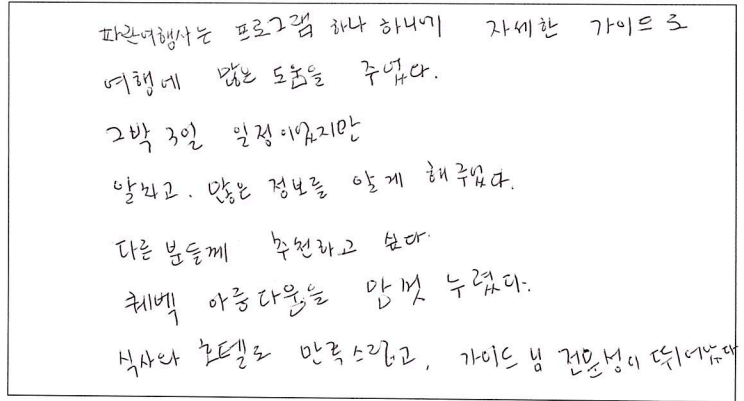 파란여행사는 프로그램 하나 하나에 자세한 가이드로
여행에 많은 도움을 주었다.
2박 3일 일정이었지만
알차고. 많은 정보를 알게 해주었다.
다른 분들께 추천하고 싶다.
퀘벡 아름다움을 맘껏 누렸다.
식사와 호텔도 만족스럽고, 가이드 님 전문성이 뛰어났다